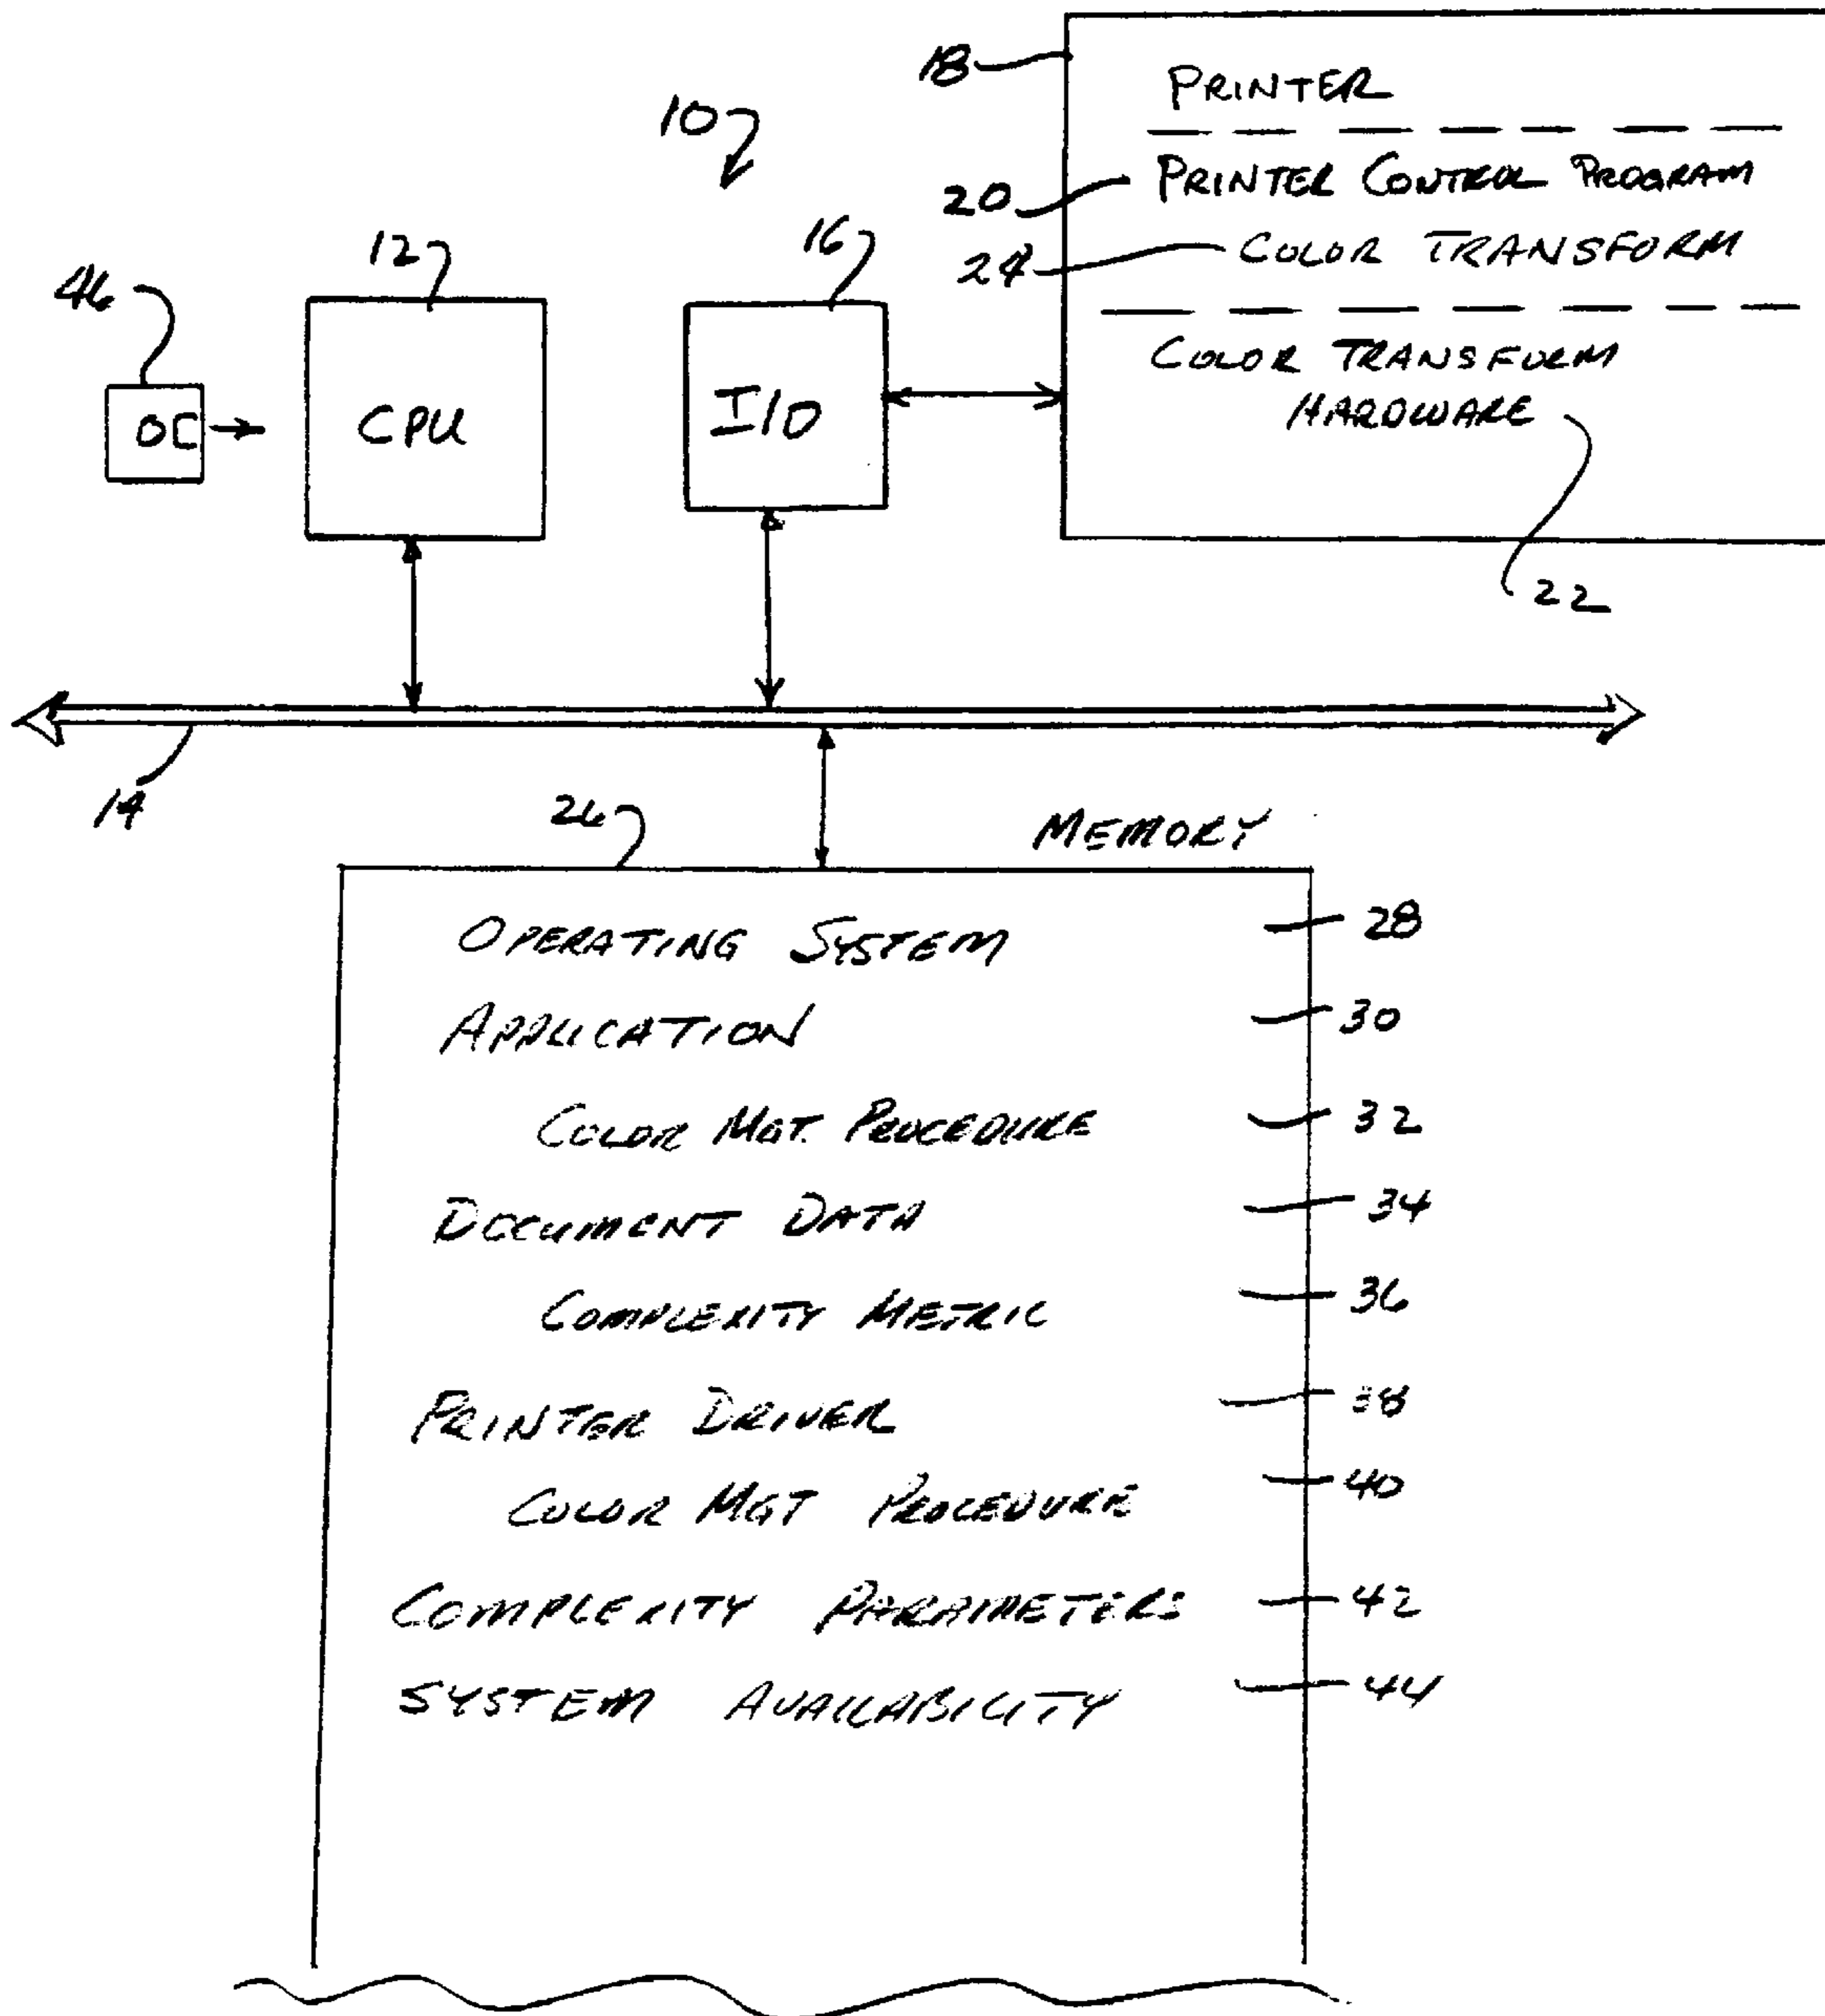 18
PRINTER
10
20
PRINTER CONTROL PROGRAM
24
COLOR TRANSFORM
COLOR TRANSFORM
HARDWARE
22
46
12
16
OC
CPU
I/O
14
26
MEMORY
OPERATING SYSTEM 28
APPLICATION 30
COLOR MGT. PROCEDURE 32
DOCUMENT DATA 34
COMPLEXITY METRIC 36
PRINTER DRIVER 38
COLOR MGT PROCEDURE 40
COMPLEXITY PARAMETERS 42
SYSTEM AVAILABILITY 44